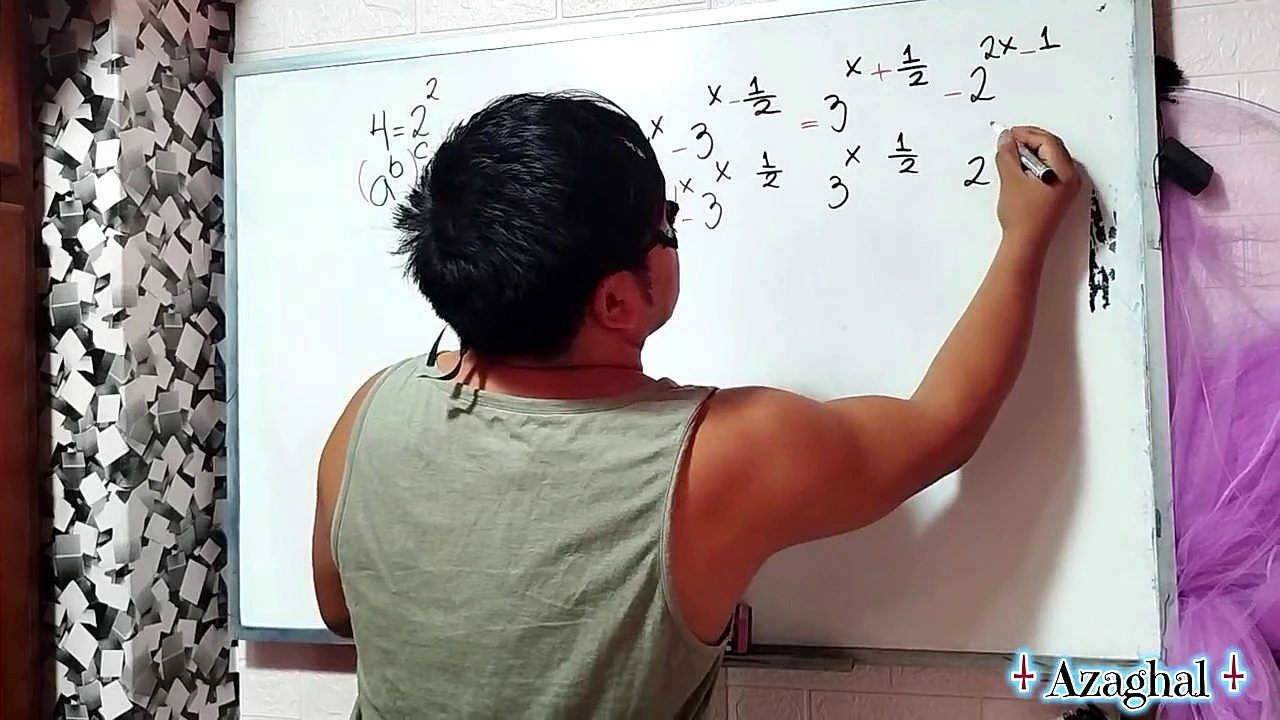 4=2²
(a^b)^c
x - 3^(x - 1/2) = 3^(x + 1/2) - 2^(2x-1)
x - 3^x 1/2 3^x 1/2 2
† Azaghal †